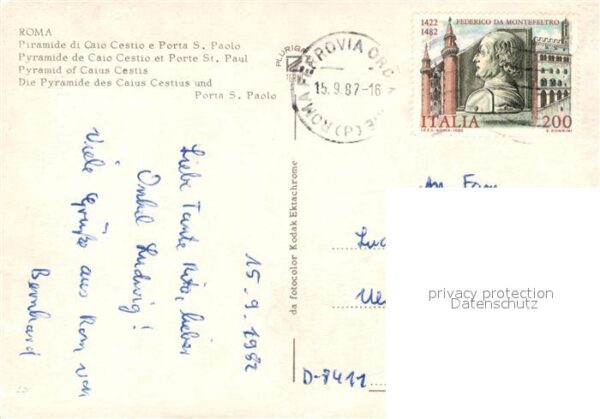 ROMA
Piramide di Caio Cestio e Porta S. Paolo
Pyramide de Caio Cestio et Porte St. Paul
Pyramid of Caius Cestis
Die Pyramide des Caius Cestius und
Porta S. Paolo
15.9.1982
Liebe Tante Rita, lieber
Onkel Ludwig!
Viele Grüße aus Rom von
Bernhard
da fotocolor Kodak Ektachrome
ROMA FERROVIA
15.9.82-16
(P)
1422
1482
FEDERICO DA MONTEFELTRO
ITALIA 200
I.P.Z.S. ROMA-1982
An Fam
D-8411
privacy protection
Datenschutz